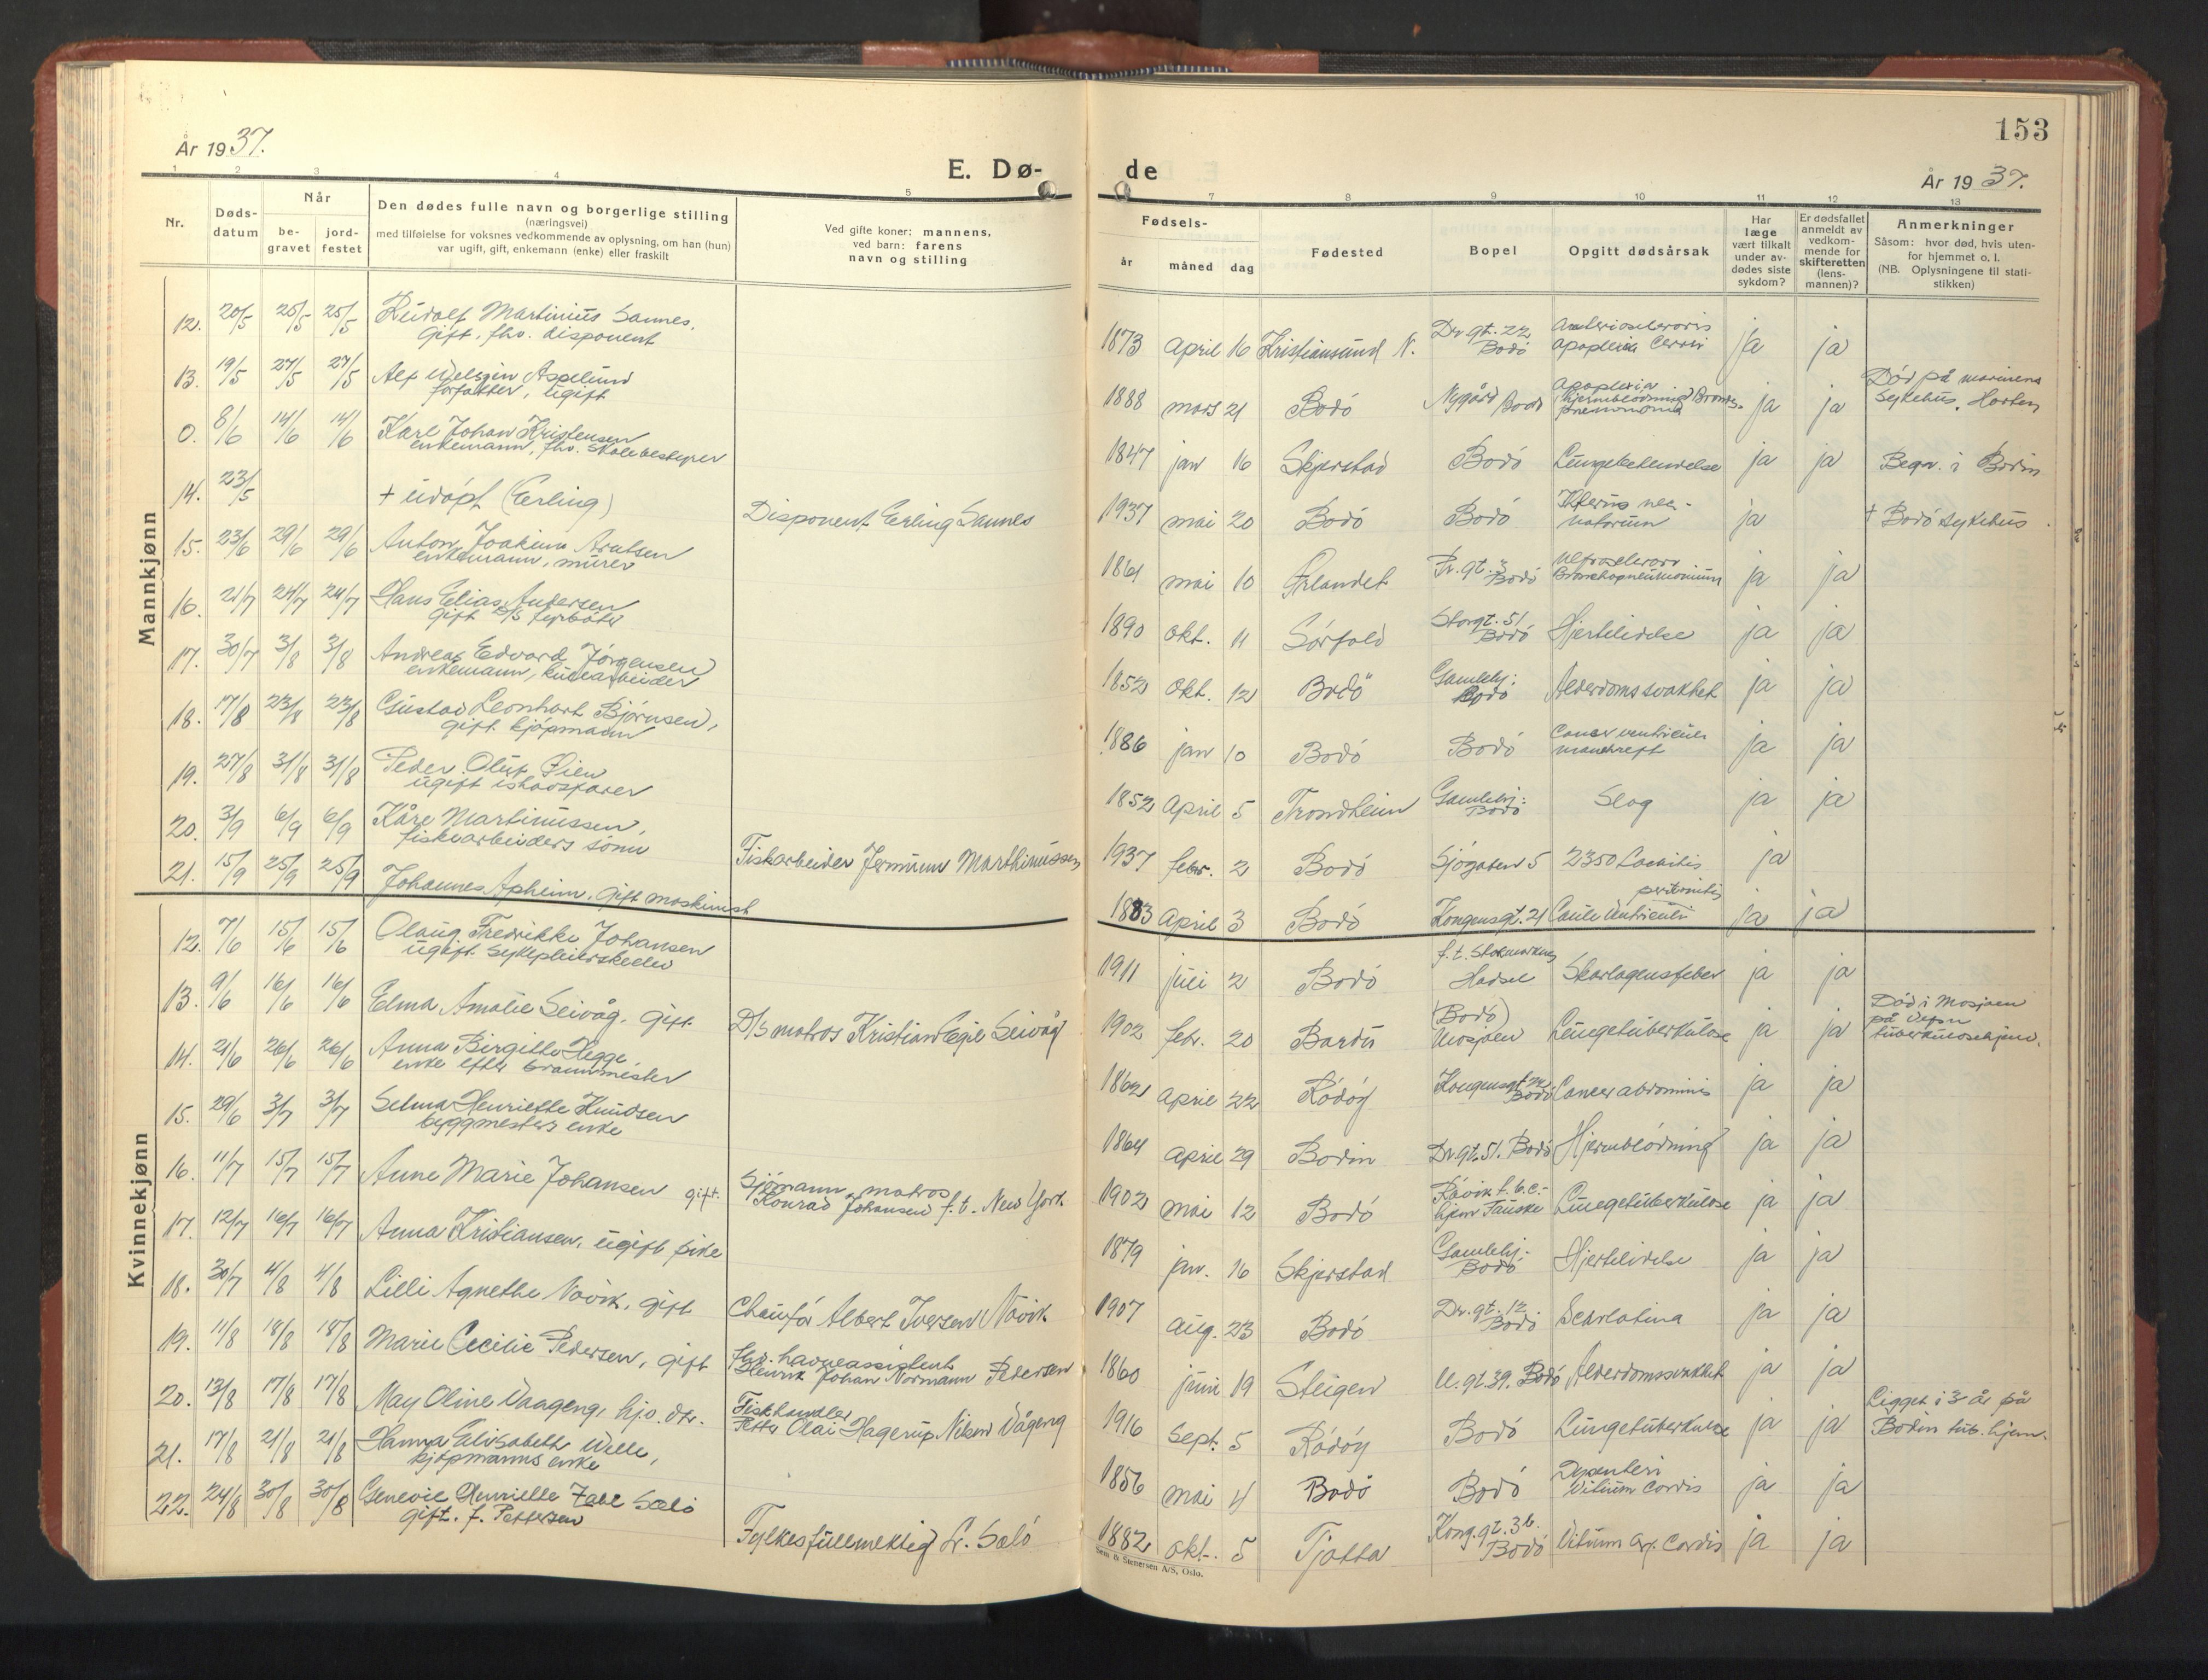 År 1937.
E. Dø-
1 2 3 4 5
Nr.
Døds-
datum
Når
be-
gravet
jord-
festet
Den dødes fulle navn og borgerlige stilling
(næringsvei)
med tilføielse for voksnes vedkommende av oplysning, om han (hun)
var ugift, gift, enkemann (enke) eller fraskilt
Ved gifte koner: mannens,
ved barn: farens
navn og stilling
Mannkjønn
12. 20/5 25/5 25/5 Rudolf Martinius Sannes,
gift, fhv. disponent
13. 19/5 27/5 27/5 Alf Aspelund
forfatter, ugift
0. 8/6 14/6 14/6 Karl Johan Kristensen
enkemann, fhv. skolebestyrer
14. 23/5 + udøpt (Erling)
Disponent Erling Sannes
15. 23/6 29/6 29/6 Anton Joakim Arntsen
enkemann, murer
16. 21/7 24/7 24/7 Hans Elias Andersen
gift D/S fyrbøter
17. 30/7 3/8 3/8 Andreas Edvard Jørgensen
enkemann,
18. 17/8 23/8 23/8 Gustav Leonhart Bjørnsen,
gift kjøpmann
19. 27/8 31/8 31/8 Peder Oluf Øien
ugift ishavsfarer
20. 3/9 6/9 6/9 Kåre Martinussen,
fiskearbeiders sønn
Fiskarbeider Martinussen
21. 15/9 25/9 25/9 Johannes Apheim, gift maskinist
Kvinnekjønn
12. 7/6 15/6 15/6 Olaug Fredrikke Johansen
ugift. sykepleierskeelev
13. 9/6 16/6 16/6 Elma Amalie Seivåg, gift
D/S matros Kristian Egil Seivåg
14. 21/6 26/6 26/6 Anna Birgitte Hegge
enke efter brannmester
15. 29/6 3/7 3/7 Selma Henriette Knudsen
byggmesters enke
16. 11/7 15/7 15/7 Anne Marie Johansen gift.
Sjømann, matros
Konrad Johansen f. t. New York.
17. 12/7 16/7 16/7 Anna Kristiansen, ugift pike
18. 30/7 4/8 4/8 Lilli Agnethe Növik, gift
Chaufør Albert Iversen Növik
19. 11/8 18/8 18/8 Marie Cecilie Pedersen, gift
fhv. havneassistent
Henrik Johan Normann Pedersen
20. 13/8 17/8 17/8 May Oline Vaageng, hjv. dtr.
Fiskhandler
Petter Olai Hagerup Vågeng
21. 17/8 21/8 21/8 Hanna Elisabeth Wille,
kjøpmanns enke
22. 24/8 30/8 30/8 Genevie Henriette Zahl Sælø
gift. f. Pettersen
Fylkesfullmektig Sælö
153
de
År 1937.
7 8 9 10 11 12 13
Fødsels-
år måned dag
Fødested
Bopel
Opgitt dødsårsak
Har
læge
vært tilkalt
under av-
dødes siste
sykdom?
Er dødsfallet
anmeldt av
vedkom-
mende for
skifteretten
(lens-
mannen)?
Anmerkninger
Såsom: hvor død, hvis uten-
for hjemmet o. l.
(NB. Oplysningene til stati-
stikken)
1873 april 16 Kristiansund N. Dr. gt. 22 Bodø Arteriosclerosis apoplexia cerebri ja ja
1888 mars 21 Bodø Nygård Bodø Apoplexia (hjerneblödning) Broncho-pneumonia ja ja Död på marinens Sykehus, Horten
1847 jan 16 Skjerstad Bodø Lungebetendelse ja ja Begr. i Bodin
1937 mai 20 Bodø Bodø Ikterus neo-natorum ja + Bodø sykehus
1861 mai 10 Ørlandet Pr. gt. 3 Bodø Bronchopneumonium ja ja
1890 okt. 11 Sørfold Storgt. 51 Bodø Hjertelidelse ja ja
1852 okt. 12 Bodø Gamlehj: Bodø Alderdomssvakhet ja ja
1886 jan 10 Bodø Bodø Cancer ventriculi mavekreft ja ja
1852 April 5 Trondheim Gamlehj: Bodø Slag ja ja
1937 febr. 2 Bodø Sjøgaten 5 ja
1883 April 3 Bodø Kongensgt. 21 peritonitis ja ja
1911 juli 2 Bodø f. t. Stokmarknes Hadsel Skarlagensfeber ja ja
1902 febr. 20 Bardu (Bodø) Mosjøen Lungetuberkulose ja ja Død i Mosjøen på Vefsn tuberkulosehjem.
1862 april 22 Rødøy Kongensgt. Bodø Cancer abdominis ja ja
1864 april 29 Bodin Dr. gt. 51. Bodø Hjerneblödning ja ja
1902 mai 12 Bodø Røvik t.b.c.-hjem Fauske Lungetuberkulose ja ja
1879 jan. 16 Skjerstad Gamlehj.- Bodø Hjertelidelse ja ja
1907 aug. 23 Bodø Dr. gt. 12 Bodø Scarlatina ja ja
1860 juni 19 Steigen gt. 39. Bodø Alderdomssvakhet ja ja
1916 Sept. 5 Rødøy Bodø Lungetuberkulose ja ja Ligget i 3 år på Bodin tub. hjem.
1856 mai 4 Bodø Bodø Dysenteri Vitium cordis ja ja
1882 okt. 5 Tjøtta Kong. gt. 36. Bodø Vitium org. cordis ja ja
Sem & Stenersen A/S, Oslo.